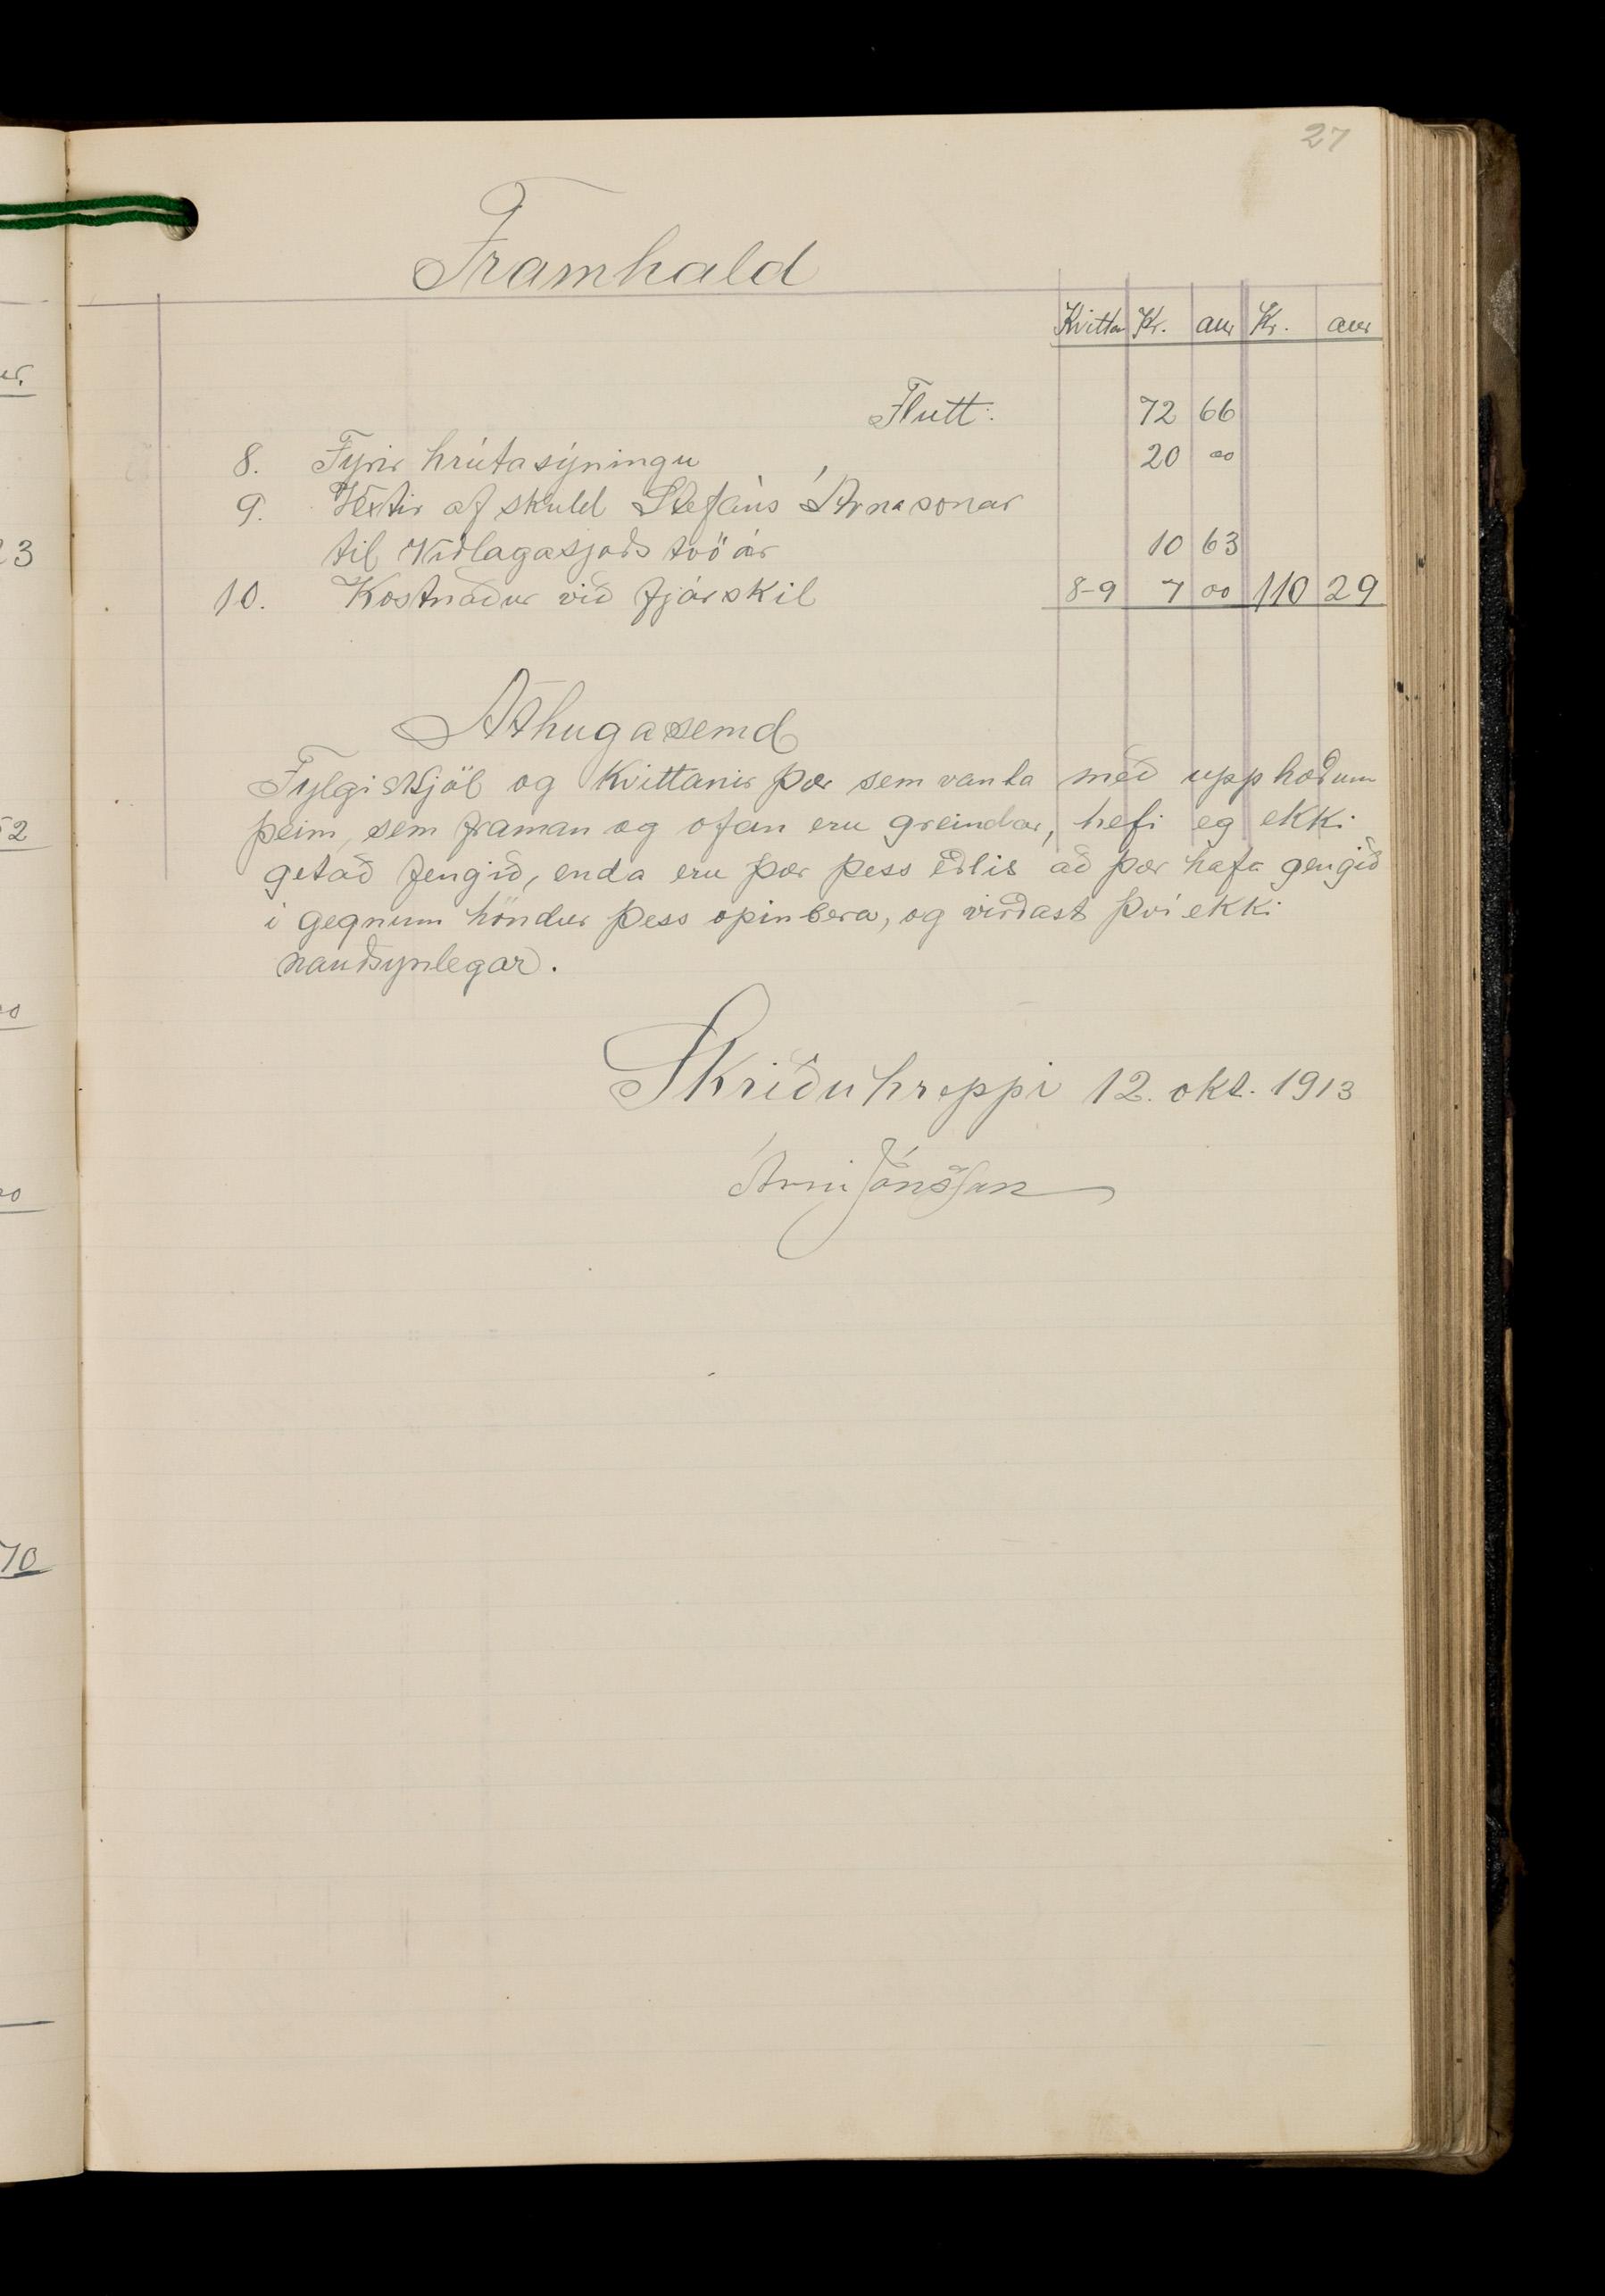 27
Framhald
Kvittan Kr. aur Kr. aur
Flutt: 72 66
8. Fyrir hrútasýningu 20 00
9. Vextir af skuld Stefáns Árnasonar
til Viðlagasjóðs tvö ár 10 63
10. Kostnaður við fjárskil 8-9 7 00 110 29
Athugasemd
Fylgiskjöl og kvittanir þær sem vanta með upphæðum
þeim, sem framan og ofan eru greindar, hefi eg ekki
getað fengið, enda eru þær þess eðlis að þær hafa gengið
í gegnum höndur þess opinbera, og virðast því ekki
nauðsynlegar.
Skriðuhreppi 12. okt. 1913
Árni Jónsson
23
52
70